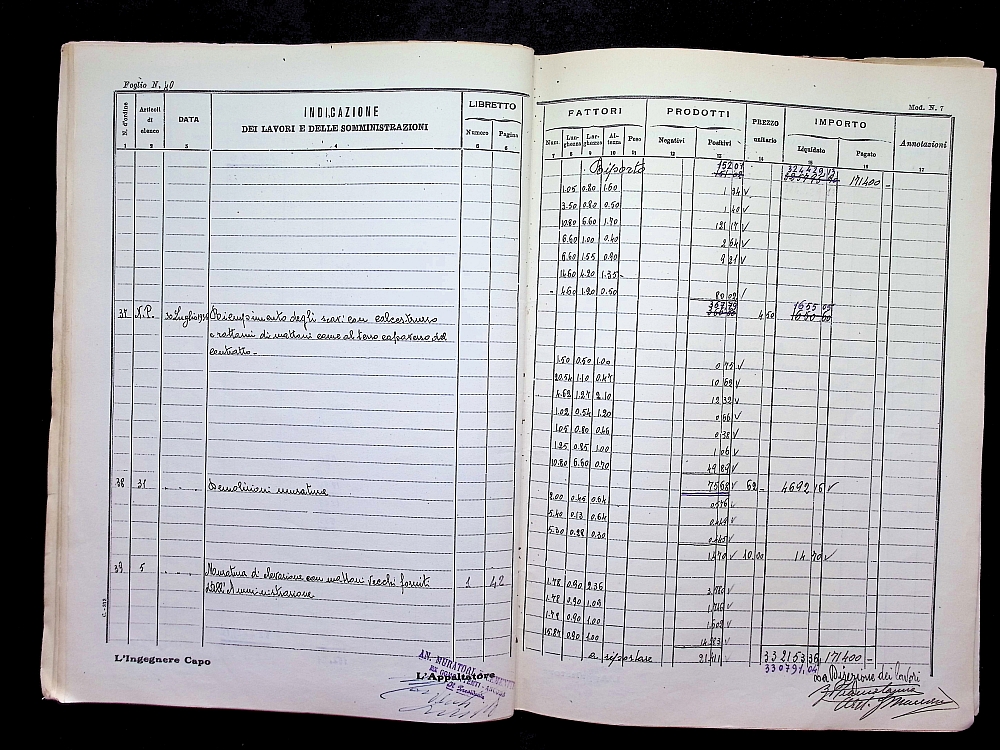 Foglio N. 40
N. d'ordine
Articoli di elenco
DATA
INDICAZIONE
DEI LAVORI E DELLE SOMMINISTRAZIONI
LIBRETTO
Numero
Pagina
1 2 3 4 5 6
37 N.P. 30 Luglio Riempimento degli scavi con calcestruzzo
e rottami di mattoni come al terzo capoverso del
contratto -
38 31 Demolizioni murature
39 5 Muratura di elevazione con mattoni vecchi forniti 1 42
dall'Amministrazione
L'Ingegnere Capo
L'Appaltatore
Mod. N. 7
FATTORI
PRODOTTI
PREZZO unitario
IMPORTO
Annotazioni
Num. Lunghezza Larghezza Altezza Peso
Negativi Positivi
Liquidato Pagato
7 8 9 10 11 12 13 14 15 16 17
Riporto 152 07 324429,13 171400 -
1.05 0.80 1.60 1 34 V
3.50 0.80 0.50 1 40 V
10.80 6.60 1.70 121 17 V
6.60 1.00 0.40 2 64 V
6.60 1.55 0.90 9 21 V
14.60 4.20 1.35
4.60 1.20 0.50 80 02 /
4 50 1655 05
1.50 0.50 1.00 0 75 V
20.54 1.10 0.47 10 62 V
4.62 1.27 2.10 12 32 V
1.02 0.54 1.20 0 66 V
1.05 0.80 0.46 0 38 V
1.25 0.85 1.00 1 06 V
10.80 6.60 0.70 49 89 V
75 68 V 62 - 4692 16 V
2.00 0.45 0.64 0.576
5.40 0.13 0.64
5.30 0.28 0.30
1.470 V 10.00 14.70 V
1.78 0.90 2.36
1.78 0.90 1.09
1.78 0.90 1.00
15.87 0.90 1.00 14.283 V
a riportare 21.411 V 332153 36 171400 -
330791,04
La Direzione dei lavori